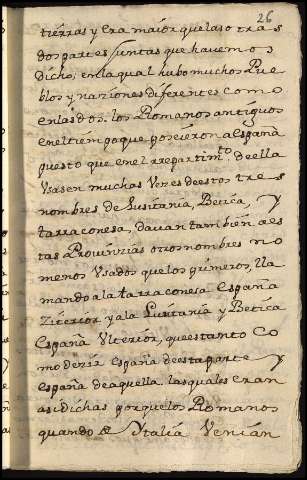 26
tierras y era maior que las otras
dos partes juntas que havemos
dicho, en la qual hubo muchos Pue
blos y naziones diferentes como
en las dos. los Romanos antiguos
en el tiempo que poseieron a España
puesto que en el repartimto de ella
Usasen muchas Vezes de estos tres
nombres de Lusitania, Betica, y
tarraconesa, davan tambien a es
tas Provinzias otros nombres no
menos Usados que los primeros, lla
mando a la tarraconesa España
Ziterior y a la Lusitania y Betica
España Ulterior, que es tanto co
mo dezir España de esta parte y
españa de aquella. las quales eran
asi dichas porque los Romanos
quando de Ytalia Venian